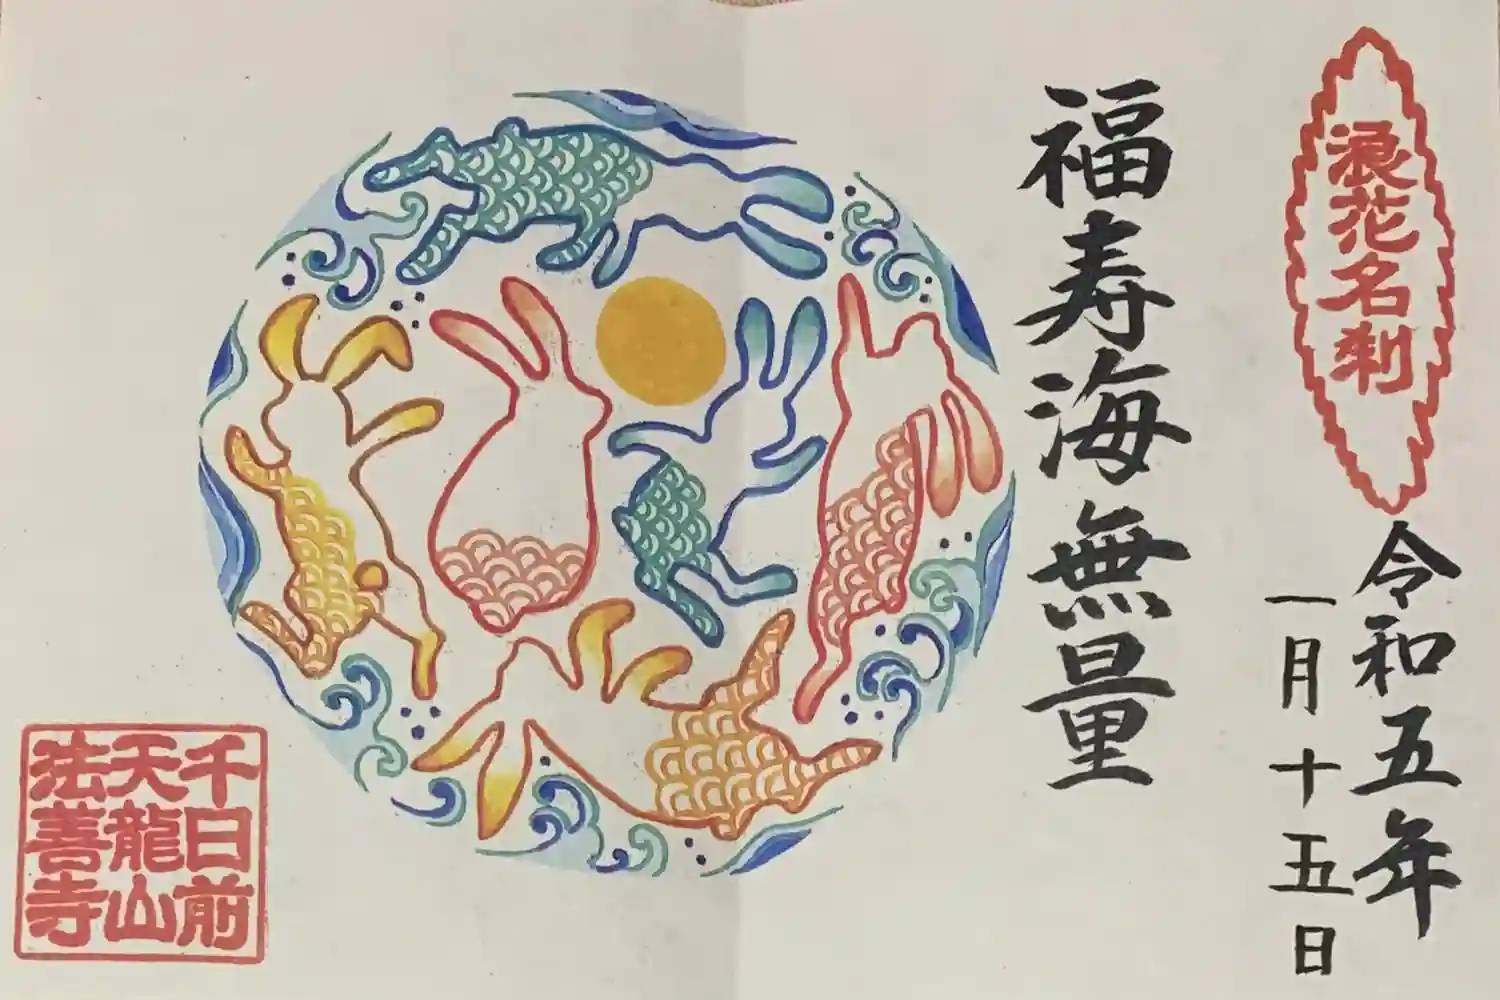 浪花名刹
令和五年
一月十五日
福寿海無量
千日前
天龍山
法善寺